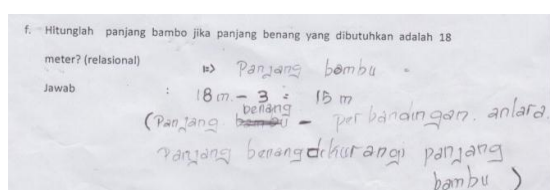 f. Hitunglah panjang bambo jika panjang benang yang dibutuhkan adalah 18
meter? (relasional)
⇒ Panjang bambu =
Jawab : 18 m - 3 = 15 m
benang
(Panjang bambu - perbandingan. antara.
Panjang benang dikurangi panjang
bambu )